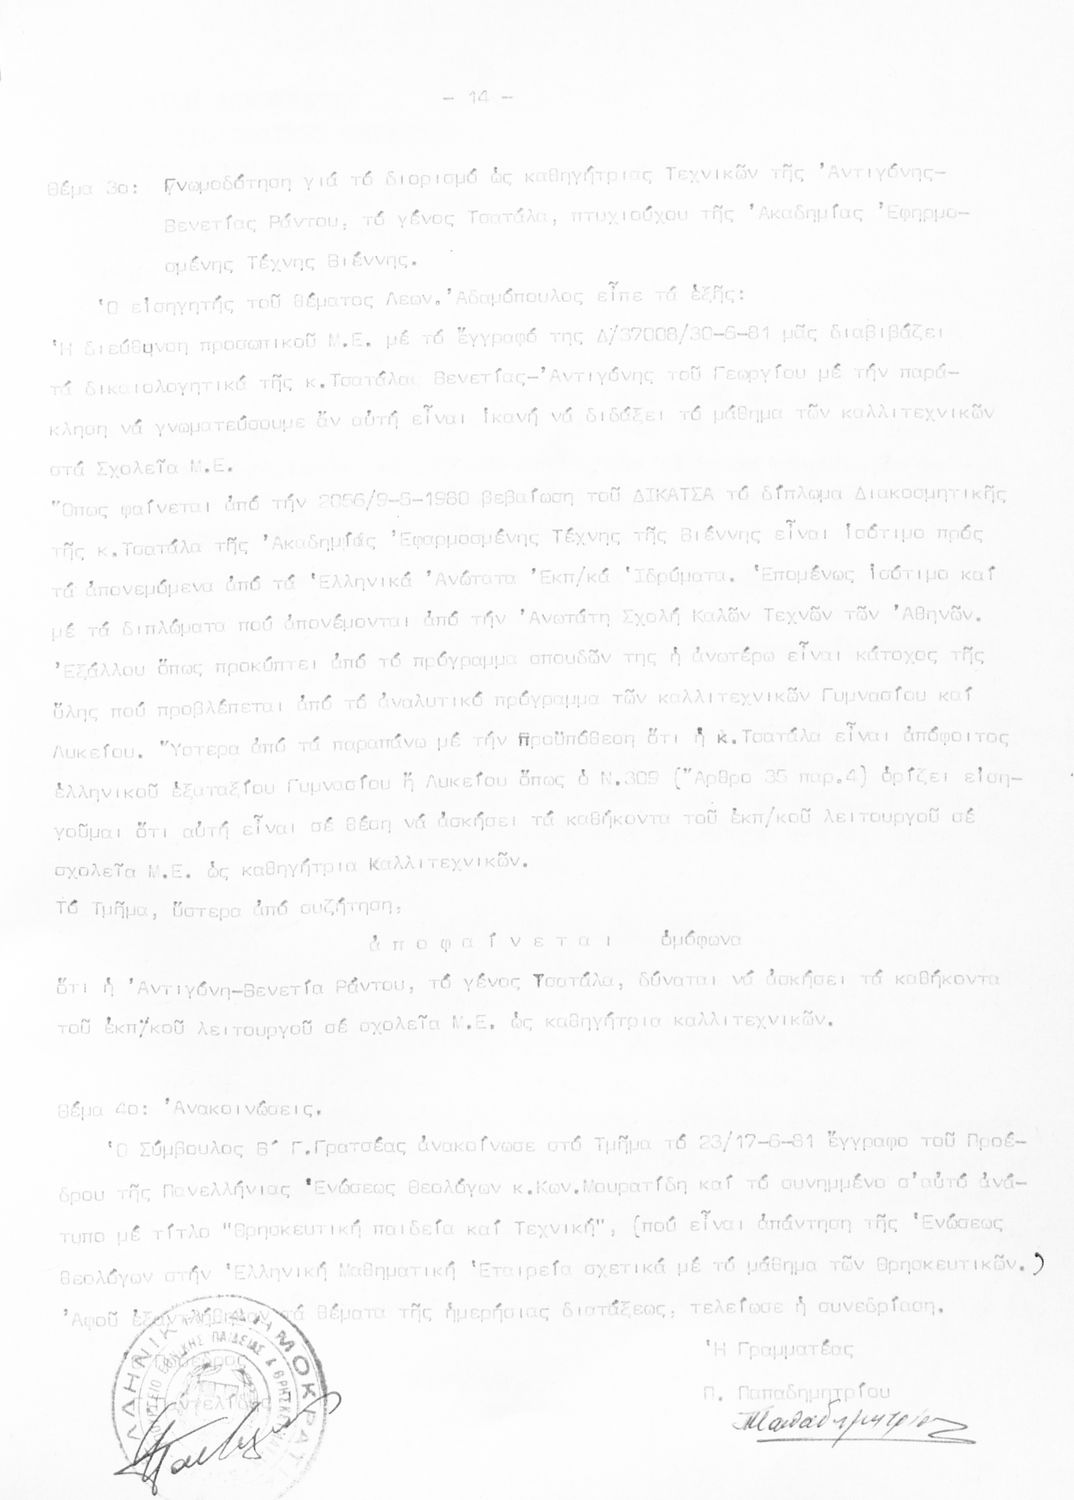 - 14 -
Θέμα 3ο: Γνωμοδότηση γιά τό διορισμό ὡς καθηγήτριας Τεχνικῶν τῆς Ἀντιγόνης-
Βενετίας Ράντου, τό γένος Τσατάλα, πτυχιούχου τῆς Ἀκαδημίας Ἐφηρμο-
σμένης Τέχνης Βιέννης.
Ὁ εἰσηγητής τοῦ θέματος Λεων. Ἀδαμόπουλος εἶπε τά ἑξῆς:
Ἡ διεύθυνση προσωπικοῦ Μ.Ε. μέ τό ἔγγραφό της Δ/37008/30-6-81 μᾶς διαβιβάζει
τά δικαιολογητικά τῆς κ.Τσατάλα Βενετίας-Ἀντιγόνης τοῦ Γεωργίου μέ τήν παρά-
κληση νά γνωματεύσουμε ἄν αὐτή εἶναι ἱκανή νά διδάξει τό μάθημα τῶν καλλιτεχνικῶν
στά Σχολεῖα Μ.Ε.
Ὅπως φαίνεται ἀπό τήν 2056/9-6-1980 βεβαίωση τοῦ ΔΙΚΑΤΣΑ τό δίπλωμα Διακοσμητικῆς
τῆς κ.Τσατάλα τῆς Ἀκαδημίας Ἐφαρμοσμένης Τέχνης τῆς Βιέννης εἶναι ἰσότιμο πρός
τά ἀπονεμόμενα ἀπό τά Ἑλληνικά Ἀνώτατα Ἐκπ/κά Ἱδρύματα. Ἑπομένως ἰσότιμο καί
μέ τά διπλώματα πού ἀπονέμονται ἀπό τήν Ἀνωτάτη Σχολή Καλῶν Τεχνῶν τῶν Ἀθηνῶν.
Ἐξάλλου ὅπως προκύπτει ἀπό τό πρόγραμμα σπουδῶν της ἡ ἀνωτέρω εἶναι κάτοχος τῆς
ὕλης πού προβλέπεται ἀπό τό ἀναλυτικό πρόγραμμα τῶν καλλιτεχνικῶν Γυμνασίου καί
Λυκείου. Ὕστερα ἀπό τά παραπάνω μέ τήν προϋπόθεση ὅτι ἡ κ.Τσατάλα εἶναι ἀπόφοιτος
ἑλληνικοῦ ἑξαταξίου Γυμνασίου ἤ Λυκείου ὅπως ὁ Ν.309 (Ἄρθρο 35 παρ.4) ὁρίζει εἰση-
γοῦμαι ὅτι αὐτή εἶναι σέ θέση νά ἀσκήσει τά καθήκοντα τοῦ ἐκπ/κοῦ λειτουργοῦ σέ
σχολεῖα Μ.Ε. ὡς καθηγήτρια καλλιτεχνικῶν.
Τό Τμῆμα, ὕστερα ἀπό συζήτηση,
ἀ π ο φ α ί ν ε τ α ι ὁμόφωνα
ὅτι ἡ Ἀντιγόνη-Βενετία Ράντου, τό γένος Τσατάλα, δύναται νά ἀσκήσει τά καθήκοντα
τοῦ ἐκπ/κοῦ λειτουργοῦ σέ σχολεῖα Μ.Ε. ὡς καθηγήτρια καλλιτεχνικῶν.
Θέμα 4ο: Ἀνακοινώσεις.
Ὁ Σύμβουλος Β΄ Γ.Γρατσέας ἀνακοίνωσε στό Τμῆμα τό 23/17-6-81 ἔγγραφο τοῦ Προέ-
δρου τῆς Πανελλήνιας Ἑνώσεως Θεολόγων κ.Κων.Μουρατίδη καί τό συνημμένο σ'αὐτό ἀνά-
τυπο μέ τίτλο "Θρησκευτική παιδεία καί Τεχνική", (πού εἶναι ἀπάντηση τῆς Ἑνώσεως
Θεολόγων στήν Ἑλληνική Μαθηματική Ἑταιρεία σχετικά μέ τό μάθημα τῶν Θρησκευτικῶν.)
Ἀφοῦ ἐξαντλήθηκαν τά θέματα τῆς ἡμερήσιας διατάξεως, τελείωσε ἡ συνεδρίαση.
Ἡ Γραμματέας
Π. Παπαδημητρίου
Παπαδημητρίου